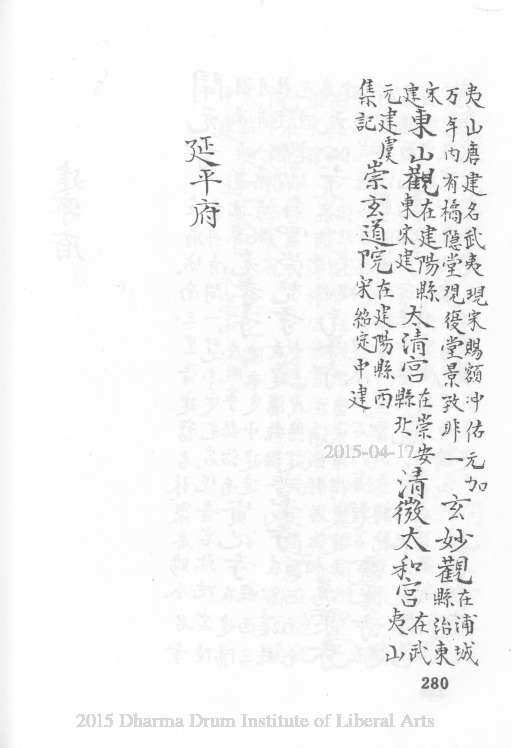 夷山唐建名武夷現宋賜額冲佑元加
万年内有橘隐堂現復堂景致非一
玄妙觀
在浦城
縣治東
宋
建
東山觀
在建陽縣
東宋建
太清宮
在崇安
縣北
清微太和宮
在武
夷山
元建虞
集記
崇玄道院
在建陽縣西
宋紹定中建
延平府
2015-04-17
280
2015 Dharma Drum Institute of Liberal Arts